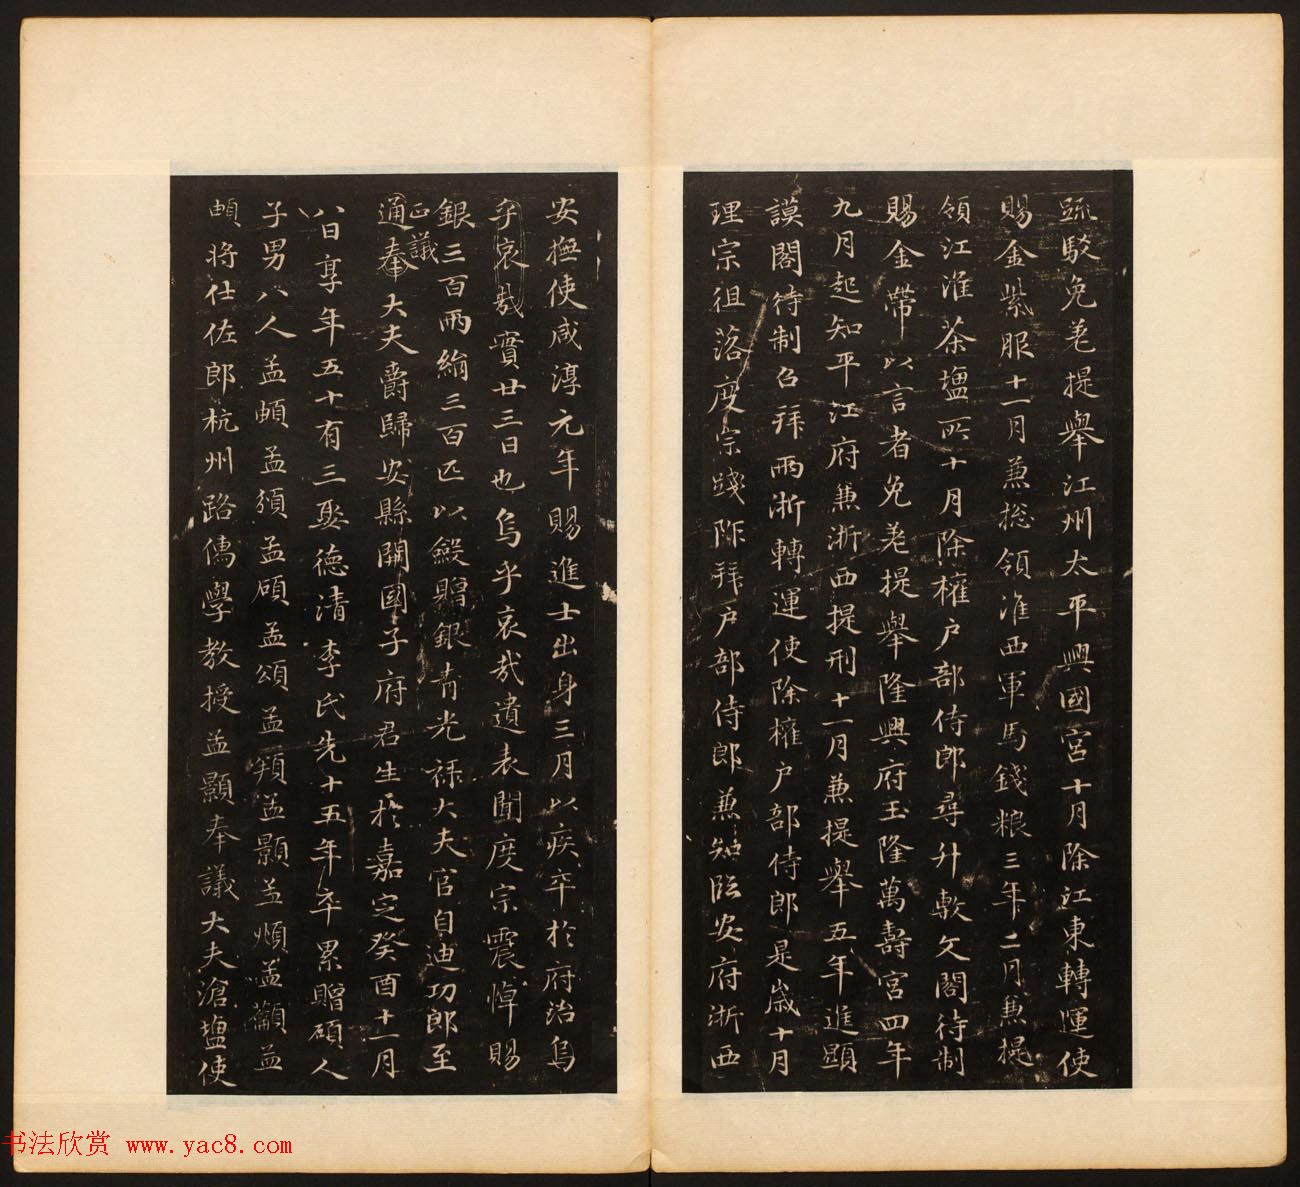 疏駁免差提舉江州太平興國宮十月除江東轉運使
賜金紫服十一月兼總領淮西軍馬錢粮三年二月兼提
領江淮茶塩所十月除權户部侍郎尋升敷文閣待制
賜金帶以言者免差提舉隆興府玉隆萬壽宮四年
九月起知平江府兼浙西提刑十一月兼提舉五年進顯
謨閣待制召拜兩浙轉運使除權户部侍郎是歲十月
理宗徂落度宗踐阼拜户部侍郎兼知臨安府浙西
安撫使咸淳元年賜進士出身三月以疾卒於府治烏
乎哀哉實廿三日也烏乎哀哉遺表聞度宗震悼賜
銀三百兩絹三百匹以斂贈銀青光祿大夫官自迪功郎至
正議
通奉大夫爵歸安縣開國子府君生於嘉定癸酉十一月
八日享年五十有三娶德清李氏先十五年卒累贈碩人
子男八人孟頔孟頒孟碩孟頌孟頖孟顥孟頫孟籲孟
頔將仕佐郎杭州路儒學教授孟顥奉議大夫滄塩使
书法欣赏 www.yac8.com